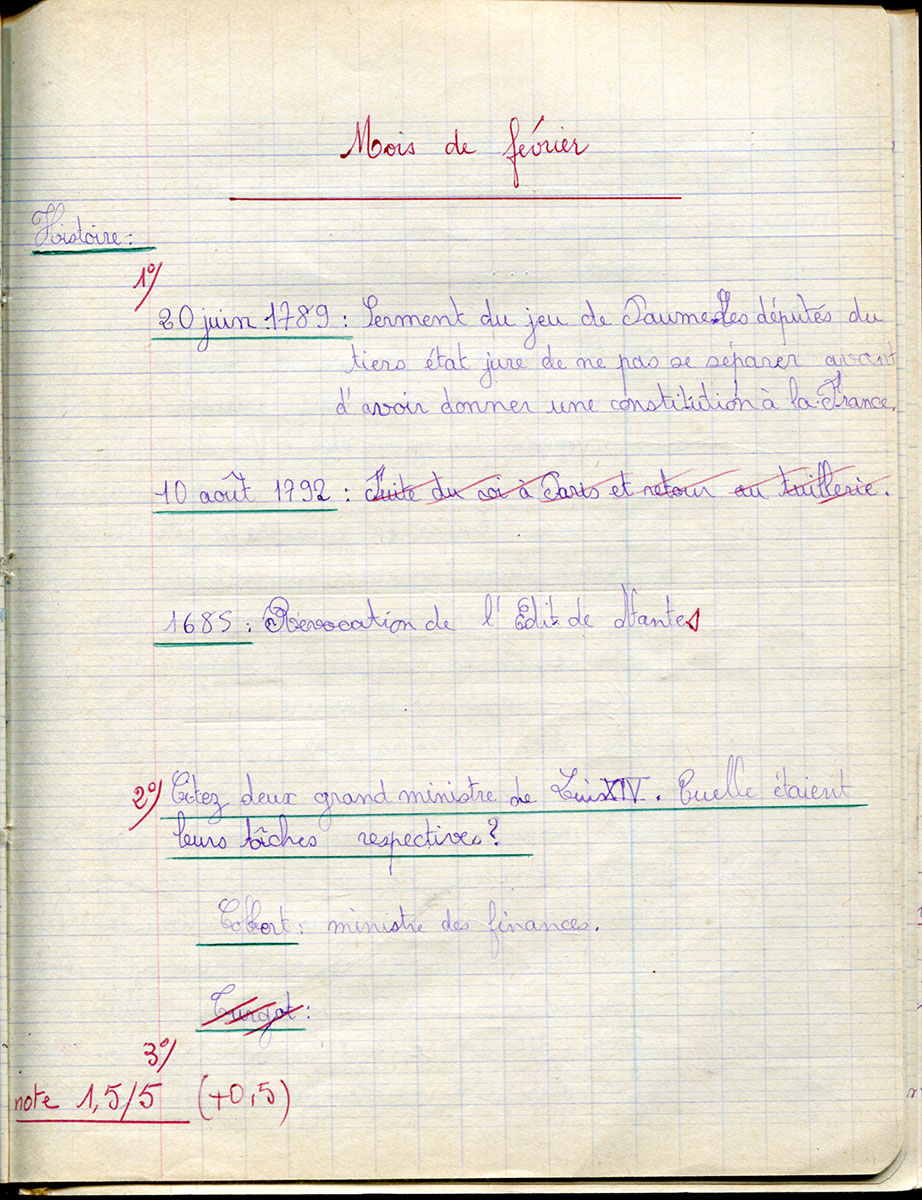 Mois de février
Histoire :
1°/
20 juin 1789 : Serment du jeu de Paume Les députés du
tiers état jure de ne pas se séparer avant
d'avoir donner une constitution à la France.
10 août 1792 : Fuite du roi à Paris et retour au tuillerie.
1685 : Révocation de l'Edit de Nantes
2°/ Citez deux grand ministre de Louis XIV. Quelle étaient
leurs tâches respectives ?
Colbert : ministre des finances.
Turgot :
3°/
note 1,5/5 (+0,5)